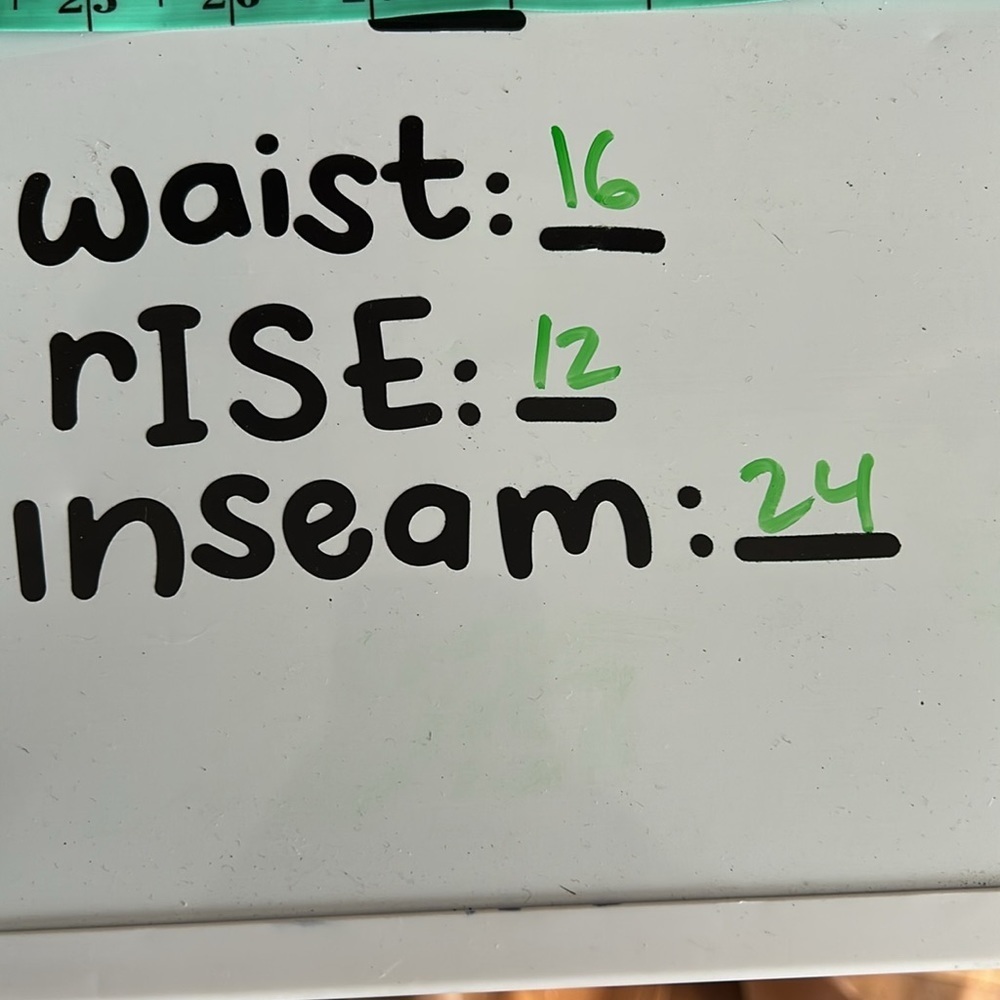 25 26
waist: 16
rISE: 12
Inseam: 24